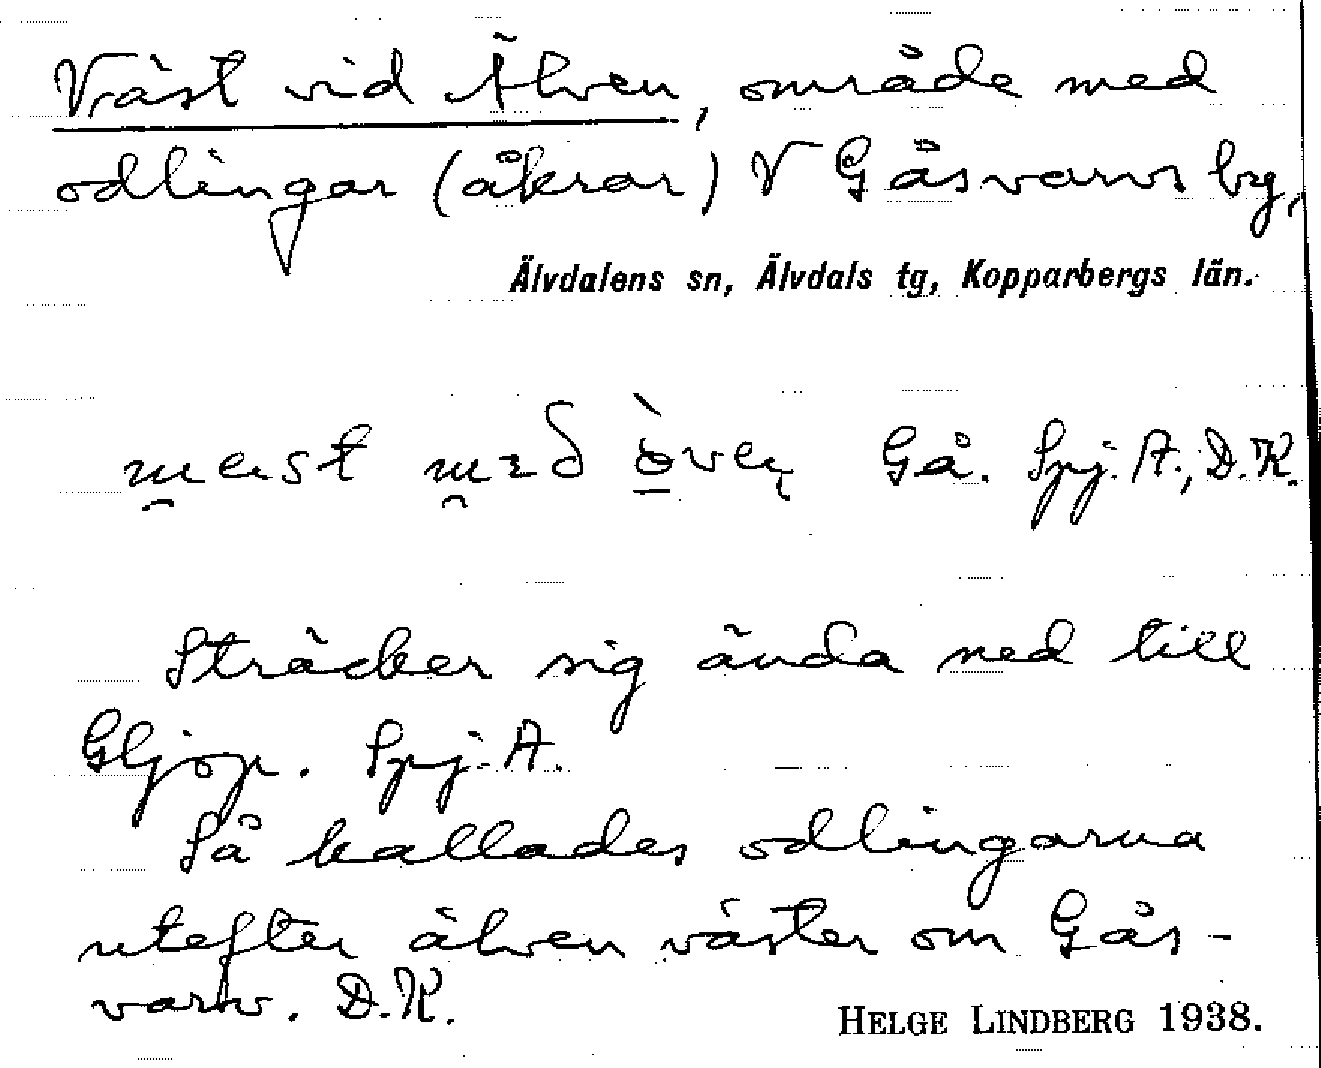 Väst vid Älven, område med
odlingar (åkrar) V Gåsvarvs by,
Älvdalens sn, Älvdals tg, Kopparbergs län.
Gå. Spj. A., D.K.
Sträcker sig ända ned till
Gljop. Spj. A.
Så kallades odlingarna
utefter älven väster om Gås-
varv. D.K.
HELGE LINDBERG 1938.